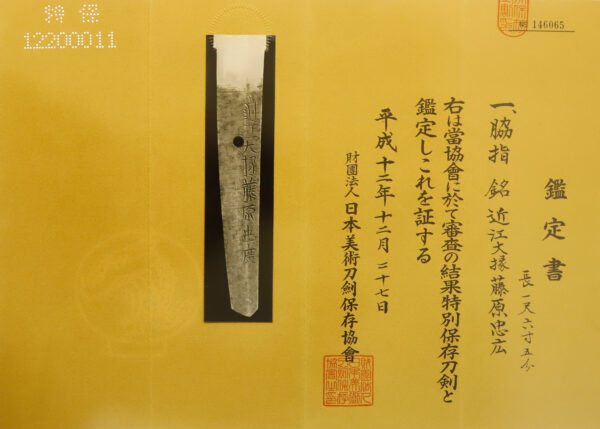 特保
12200011
№ 146065
鑑定書
一、脇指 銘 近江大掾藤原忠広
長一尺六寸五分
右は當協會に於て審査の結果特別保存刀劍と
鑑定しこれを証する
平成十二年十二月二十七日
財團法人 日本美術刀劍保存協會
近江大掾藤原忠廣